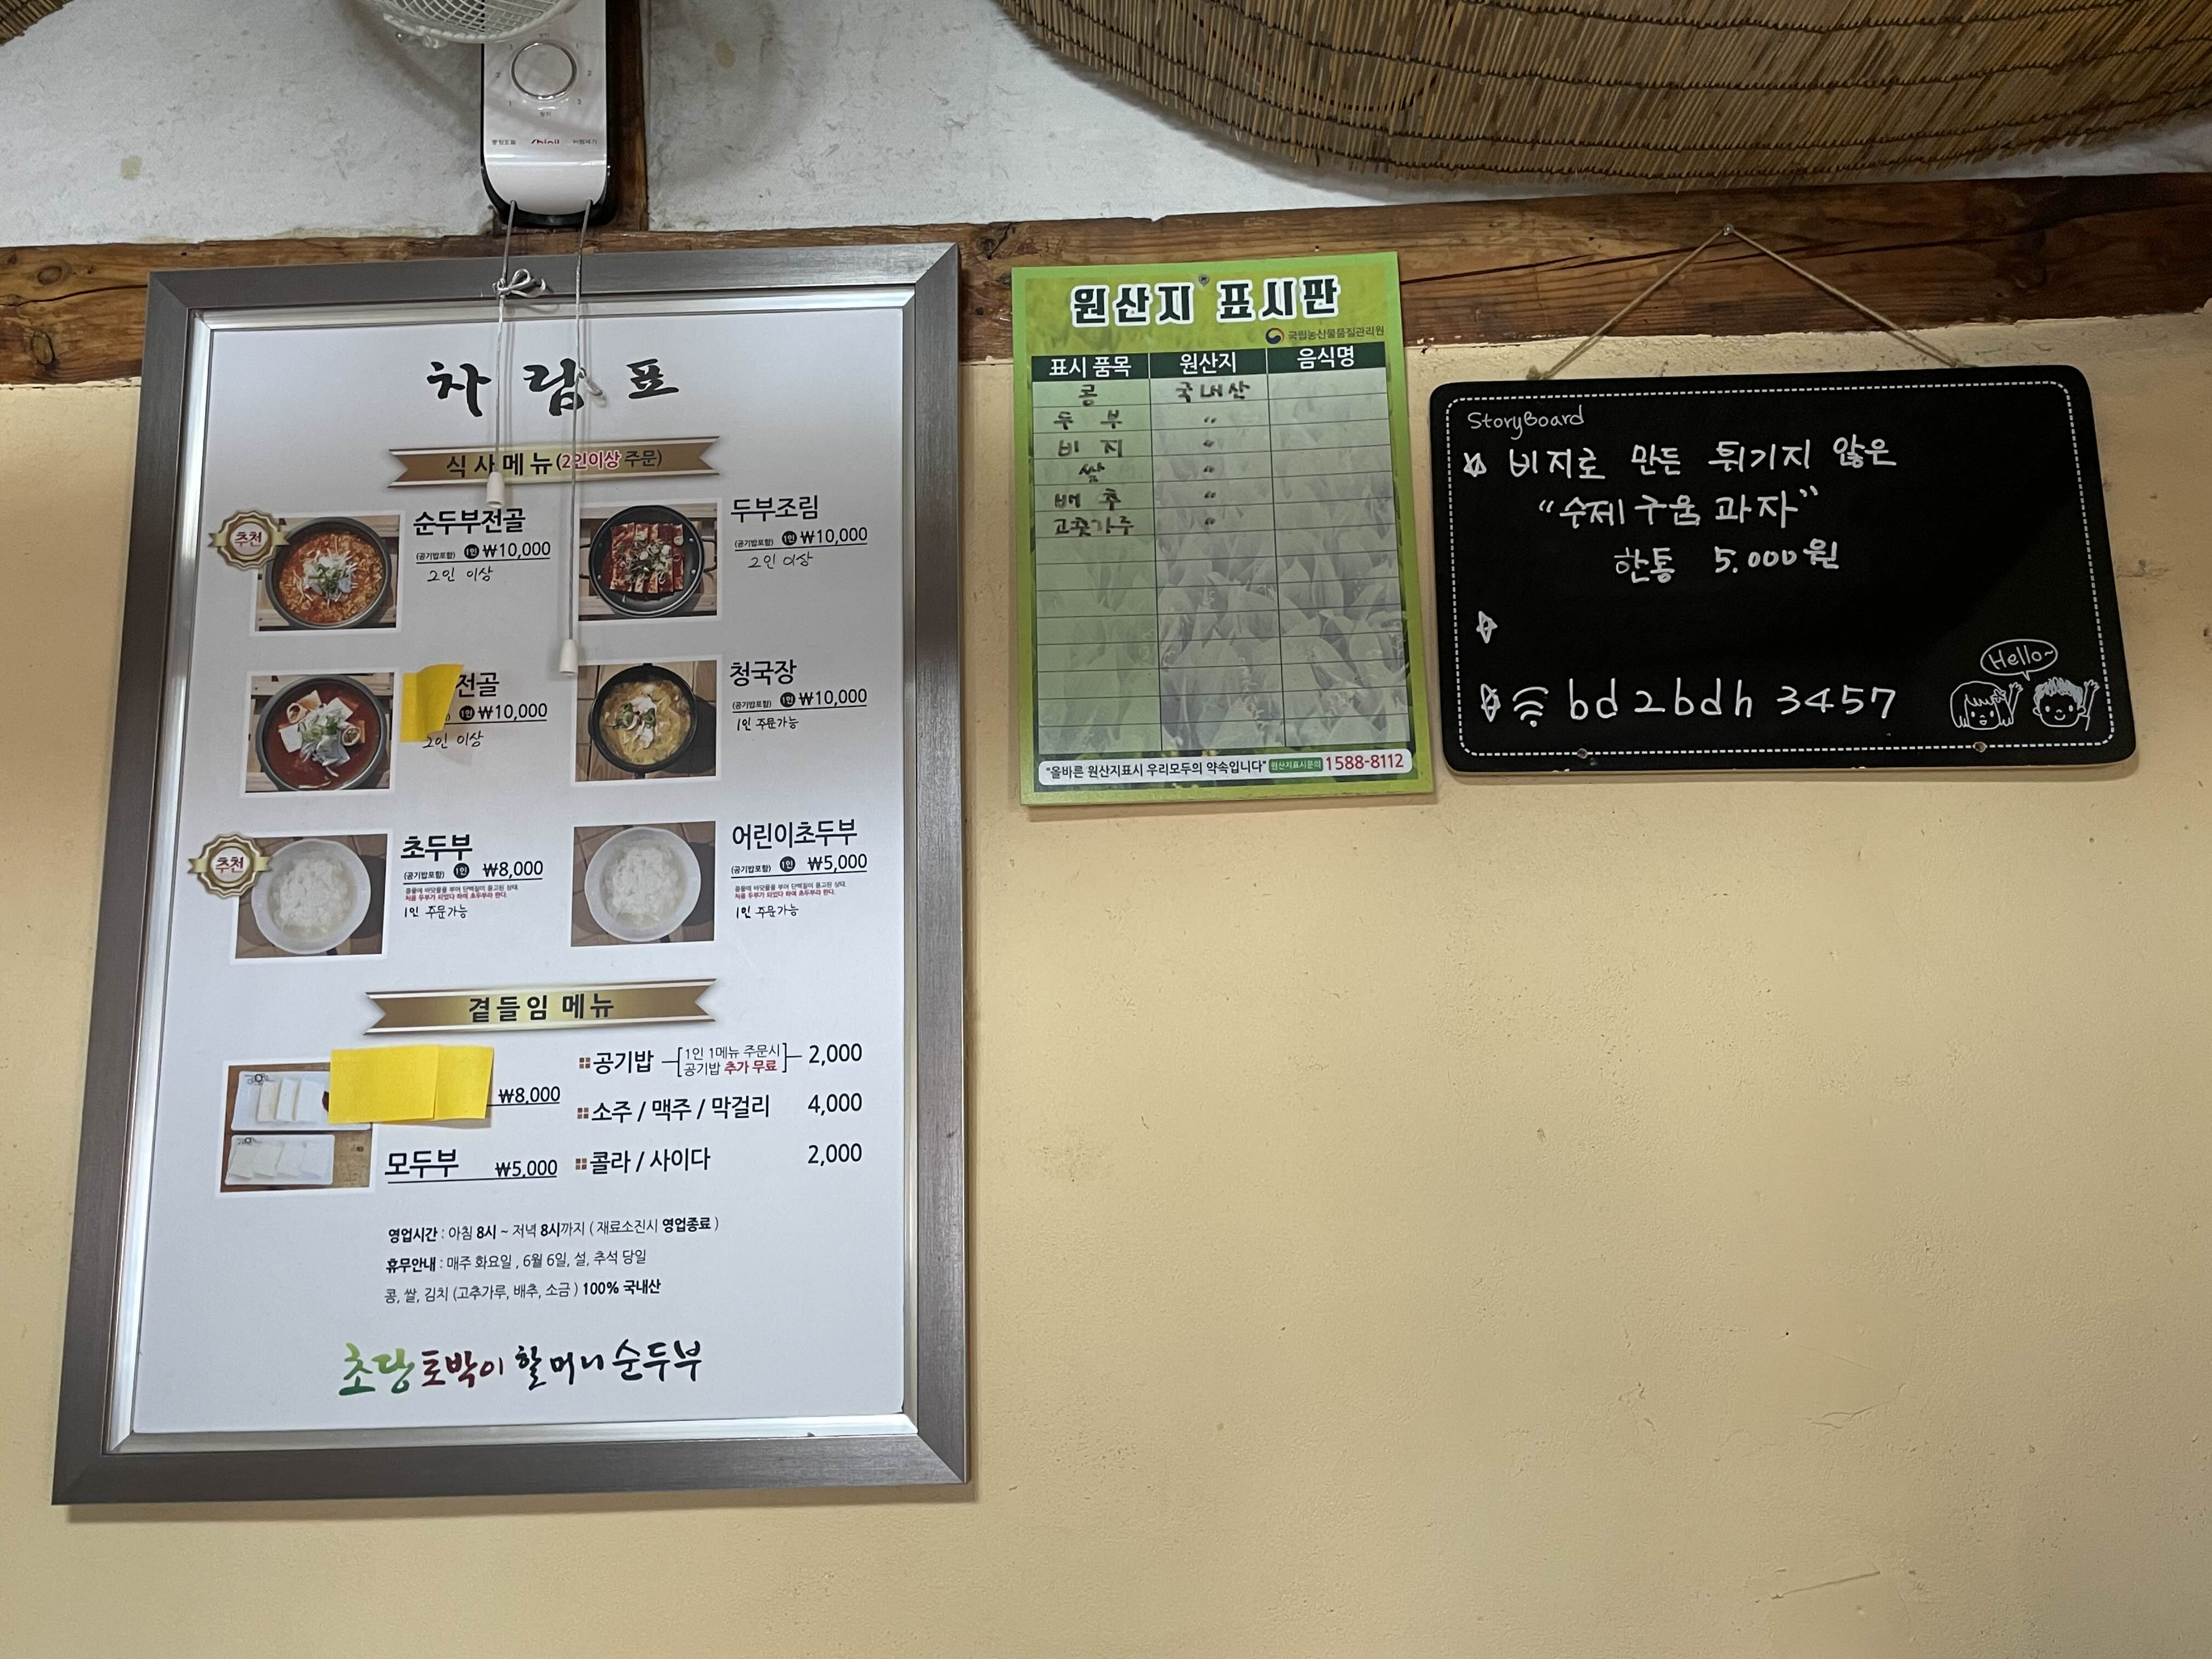 차림표
식사메뉴(2인이상 주문)
추천
순두부전골
(공기밥포함) 1인 ₩10,000
2인 이상
두부조림
(공기밥포함) 1인 ₩10,000
2인 이상
전골
1인 ₩10,000
2인 이상
청국장
(공기밥포함) 1인 ₩10,000
1인 주문가능
추천
초두부
(공기밥포함) 1인 ₩8,000
콩물에 바닷물을 부어 단백질이 응고된 상태.
처음 두부가 되었다 하여 초두부라 한다.
1인 주문가능
어린이초두부
(공기밥포함) 1인 ₩5,000
콩물에 바닷물을 부어 단백질이 응고된 상태.
처음 두부가 되었다 하여 초두부라 한다.
1인 주문가능
곁들임 메뉴
₩8,000
모두부 ₩5,000
공기밥 [1인 1메뉴 주문시 공기밥 추가 무료] 2,000
소주 / 맥주 / 막걸리 4,000
콜라 / 사이다 2,000
영업시간 : 아침 8시 ~ 저녁 8시까지 ( 재료소진시 영업종료 )
휴무안내 : 매주 화요일 , 6월 6일, 설, 추석 당일
콩, 쌀, 김치 (고추가루, 배추, 소금 ) 100% 국내산
초당토박이할머니순두부
원산지 표시판
국립농산물품질관리원
표시 품목 원산지 음식명
콩 국내산
두부 〃
비지 〃
쌀 〃
배추 〃
고춧가루 〃
"올바른 원산지표시 우리모두의 약속입니다" 원산지표시문의 1588-8112
StoryBoard
☆ 비지로 만든 튀기지 않은
"수제 구움 과자"
한통 5.000원
☆
☆ bd2bdh3457
Hello~